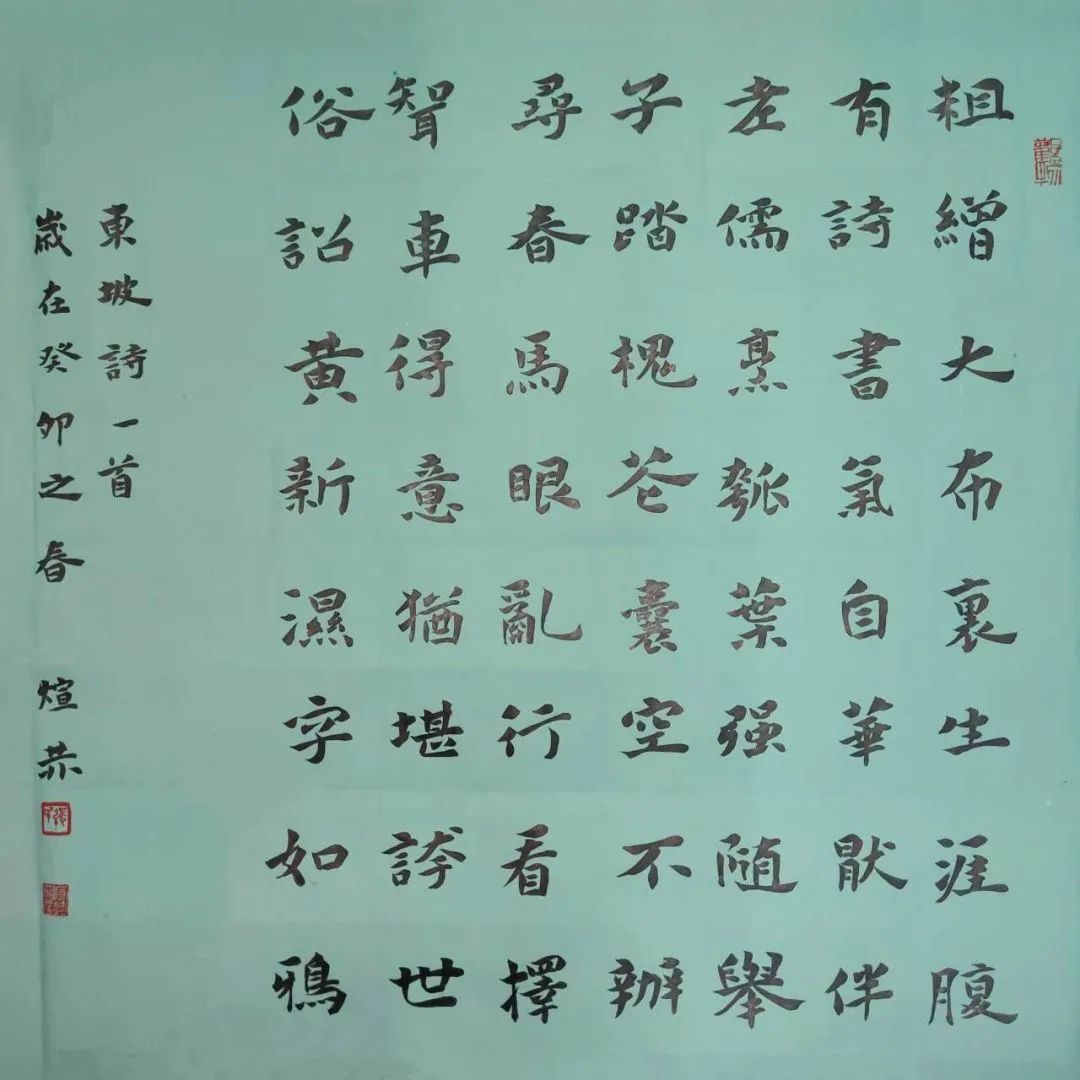 粗繒大布裏生涯腹
有詩書氣自華猒伴
老儒烹瓠葉强随舉
子踏槐花囊空不辦
尋春馬眼亂行看擇
聟車得意猶堪誇世
俗詔黄新濕字如鴉
東坡詩一首
歲在癸卯之春 煊恭